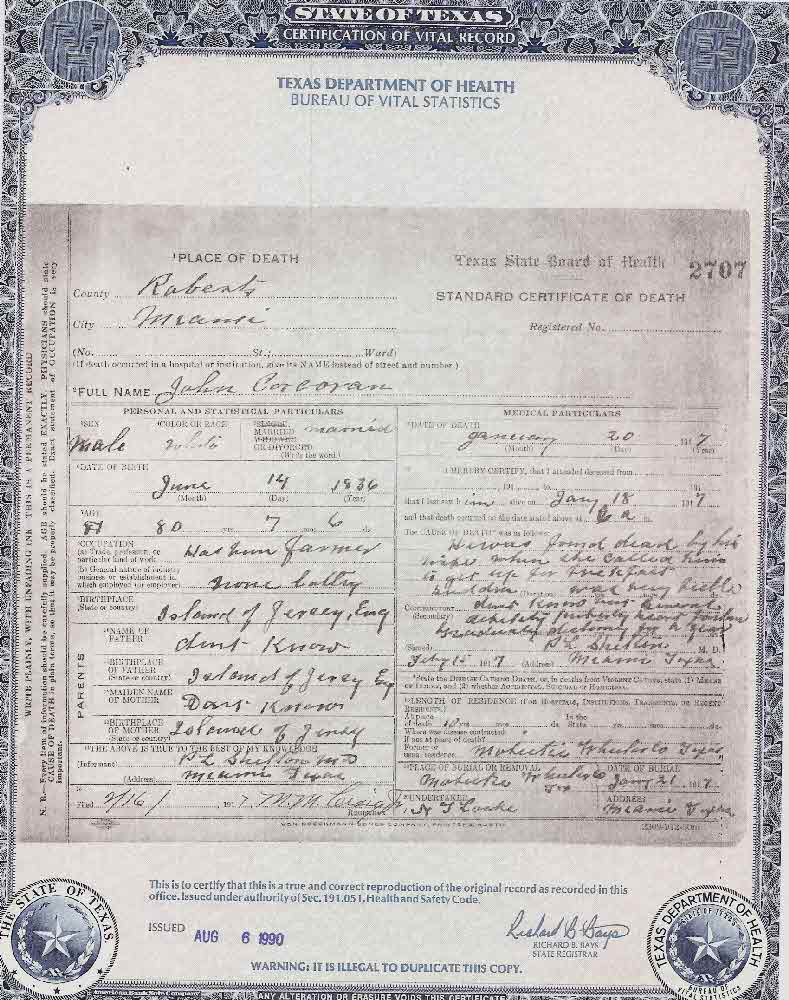 STATE OF TEXAS
CERTIFICATION OF VITAL RECORD
TEXAS DEPARTMENT OF HEALTH
BUREAU OF VITAL STATISTICS
PLACE OF DEATH
Texas State Board of Health 2707
County Roberts
STANDARD CERTIFICATE OF DEATH
City Miami
Registered No.
(No. St.; Ward)
(If death occurred in a hospital or institution, give its NAME instead of street and number.)
FULL NAME John Corcoran
PERSONAL AND STATISTICAL PARTICULARS
SEX
Male
COLOR OR RACE
White
SINGLE
MARRIED married
WIDOWED
OR DIVORCED
(Write the word)
DATE OF BIRTH
June 14 1836
(Month) (Day) (Year)
AGE
80 yrs. 7 mos. 6 ds.
OCCUPATION
(a) Trade, profession, or
particular kind of work Has been farmer
(b) General nature of industry
business, or establishment in
which employed (or employer)
BIRTHPLACE
(State or country) Island of Jersey, Eng
PARENTS
NAME OF
FATHER dont Know
BIRTHPLACE
OF FATHER
(State or country) Island of Jersey Eng
MAIDEN NAME
OF MOTHER Dont Know
BIRTHPLACE
OF MOTHER
(State or country) Island of Jersey
THE ABOVE IS TRUE TO THE BEST OF MY KNOWLEDGE
(Informant) P L Shelton MD
(Address) Miami Texas
Filed 2/16/ 1917
Registrar
MEDICAL PARTICULARS
DATE OF DEATH
January 20 1917
(Month) (Day) (Year)
I HEREBY CERTIFY, that I attended deceased from
191 to 191
that I last saw him alive on Jany 18 1917
and that death occurred on the date stated above at 6 a m.
The CAUSE OF DEATH was as follows:
He was found dead by his
wife when she called him
to get up for breakfast
was very feeble
Contributory dont Know but general
(Secondary) debility
gradually declining for a year
(Signed) P L Shelton M. D.
Feby 15 1917 (Address) Miami Texas
State the DISEASE CAUSING DEATH, or, in deaths from VIOLENT CAUSES, state (1) MEANS
OF INJURY, and (2) whether ACCIDENTAL, SUICIDAL or HOMICIDAL.
LENGTH OF RESIDENCE (FOR HOSPITALS, INSTITUTIONS, TRANSIENTS, OR RECENT
RESIDENTS.)
At place
of death 10 yrs. mos. ds.
In the
State yrs. mos. ds.
Where was disease contracted
if not at place of death?
Former or
usual residence Mobeetie Wheeler Co Texas
PLACE OF BURIAL OR REMOVAL
Mobeetie Wheeler Co
Tex
DATE OF BURIAL
Jany 21 1917
UNDERTAKER
N S Locke
ADDRESS
Miami Texas
N. B.—Every item of information should be carefully supplied. AGE should be stated EXACTLY. PHYSICIANS should state
CAUSE OF DEATH in plain terms, so that it may be properly classified. Exact statement of OCCUPATION is very
important.
WRITE PLAINLY, WITH UNFADING INK—THIS IS A PERMANENT RECORD
VON BOECKMANN-JONES COMPANY, PRINTERS, AUSTIN
This is to certify that this is a true and correct reproduction of the original record as recorded in this
office. Issued under authority of Sec. 191.051, Health and Safety Code.
ISSUED AUG 6 1990
Richard B. Bays
RICHARD B. BAYS
STATE REGISTRAR
WARNING: IT IS ILLEGAL TO DUPLICATE THIS COPY.
THE STATE OF TEXAS
TEXAS DEPARTMENT OF HEALTH
STATE OF TEXAS
BUREAU OF
VITAL STATISTICS
American Bank Note Company
ANY ALTERATION OR ERASURE VOIDS THIS CERTIFICATE